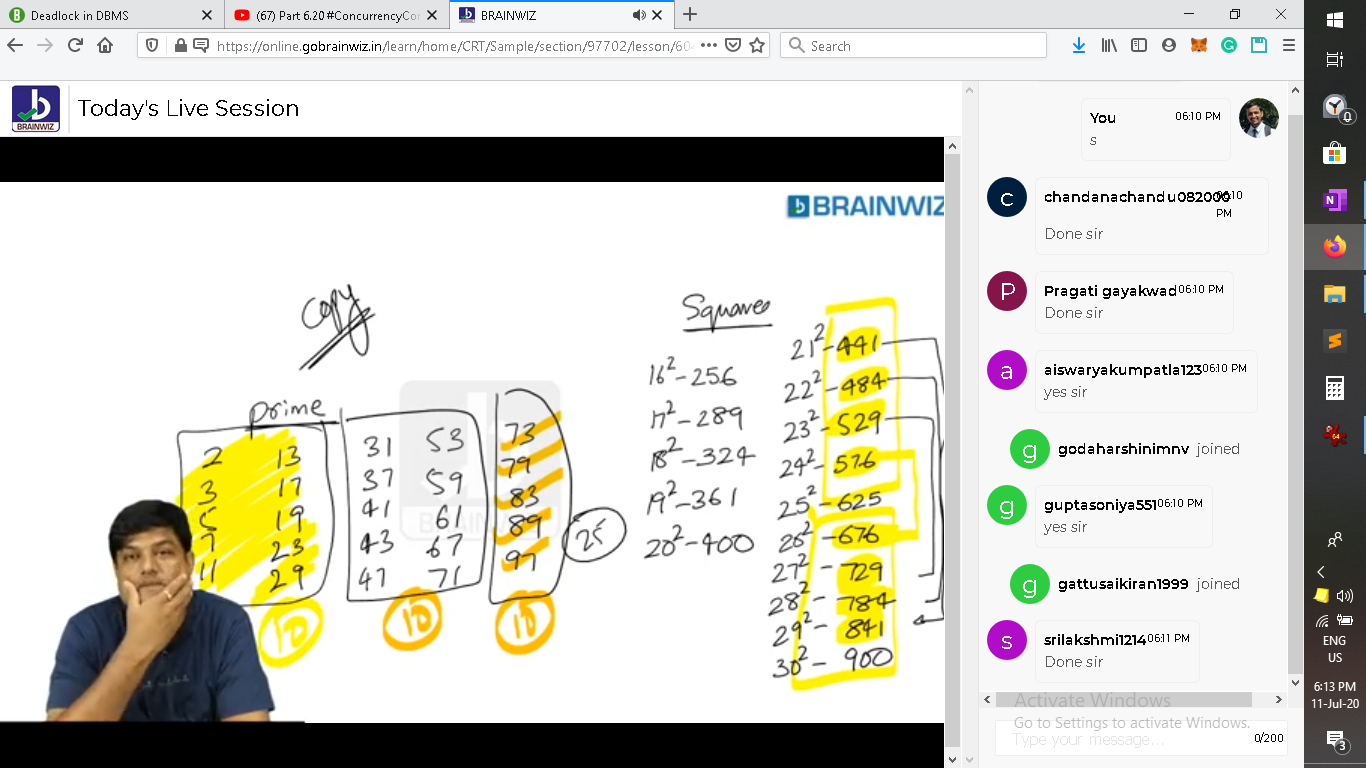 Deadlock in DBMS
(67) Part 6.20 #ConcurrencyCor
BRAINWIZ
https://online.gobrainwiz.in/learn/home/CRT/Sample/section/97702/lesson/604
Search
BRAINWIZ
Today's Live Session
BRAINWIZ
Copy
prime
2 13
3 17
5 19
7 23
11 29
10
31 53
37 59
41 61
43 67
47 71
10
73
79
83
89
97
25
Squares
16²-256
17²-289
18²-324
19²-361
20²-400
21²-441
22²-484
23²-529
24²-576
25²-625
26²-676
27²-729
28²-784
29²-841
30²-900
You 06:10 PM
s
c
chandanachandu082000 06:10 PM
Done sir
P
Pragati gayakwad 06:10 PM
Done sir
a
aiswaryakumpatla123 06:10 PM
yes sir
g
godaharshinimnv joined
g
guptasoniya551 06:10 PM
yes sir
g
gattusaikiran1999 joined
s
srilakshmi1214 06:11 PM
Done sir
Activate Windows
Go to Settings to activate Windows.
Type your message...
0/200
ENG
US
6:13 PM
11-Jul-20
3